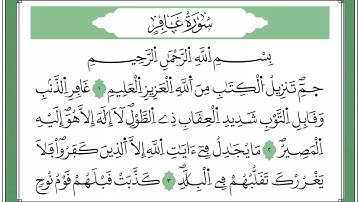 سُورَةُ غَافِرٍ
بِسْمِ اللَّهِ الرَّحْمَٰنِ الرَّحِيمِ
حمٓ تَنزِيلُ الْكِتَابِ مِنَ اللَّهِ الْعَزِيزِ الْعَلِيمِ ١ غَافِرِ الذَّنۢبِ
وَقَابِلِ التَّوْبِ شَدِيدِ الْعِقَابِ ذِے الطَّوْلِ لَآ إِلَٰهَ إِلَّا هُوَ إِلَيْهِ
الْمَصِيرُ ٢ مَا يُجَٰدِلُ فِےٓ ءَايَٰتِ اللَّهِ إِلَّا الَّذِينَ كَفَرُوا۟ فَلَا
يَغْرُرْكَ تَقَلُّبُهُمْ فِے الْبِلَٰدِ ٣ كَذَّبَتْ قَبْلَهُمْ قَوْمُ نُوحٍ